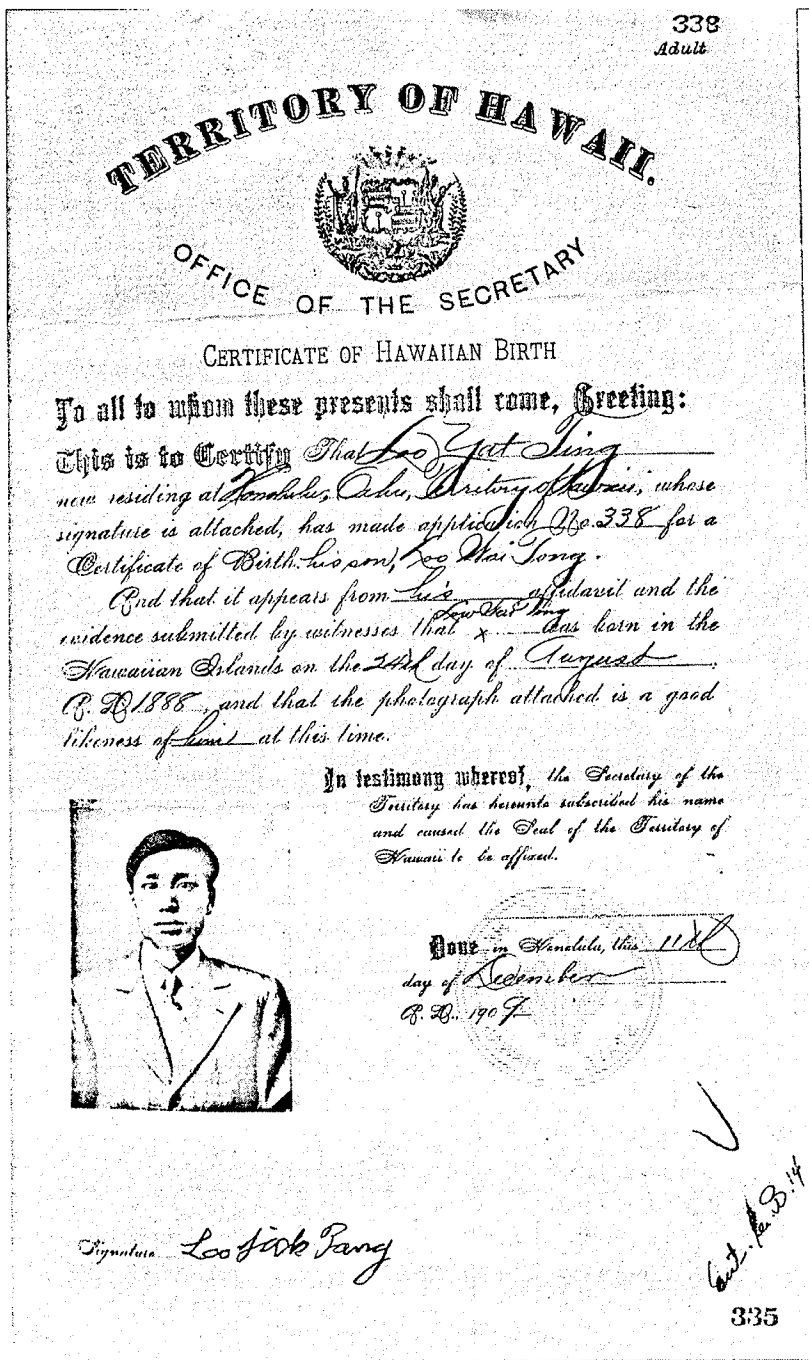 338
Adult
TERRITORY OF HAWAII.
OFFICE OF THE SECRETARY
CERTIFICATE OF HAWAIIAN BIRTH
To all to whom these presents shall come, Greeting:
This is to Certify That Loo Yat Ting
now residing at Honolulu, Oahu, Territory of Hawaii, whose
signature is attached, has made application No. 338 for a
Certificate of Birth his son, Loo Wai Tong.
And that it appears from his affidavit and the
evidence submitted by witnesses that x was born in the
Hawaiian Islands on the 24th day of August
A. D. 1888, and that the photograph attached is a good
likeness of him at this time.
In testimony whereof, the Secretary of the
Territory has hereunto subscribed his name
and caused the Seal of the Territory of
Hawaii to be affixed.
Done in Honolulu, this 11th
day of December
A. D. 1909
Signature Loo Pang
335